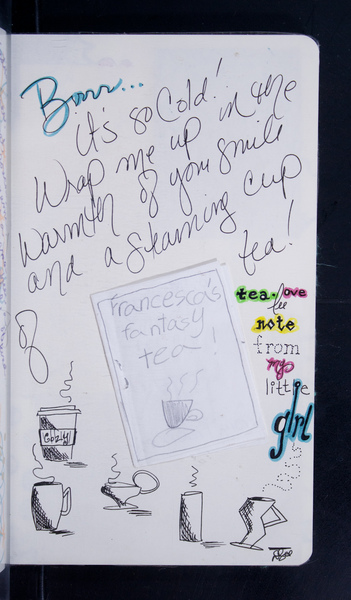 Brrr...
it's so Cold!
Wrap me up in the
warmth of your smile
and a steaming cup
of tea!
Francesca's
fantasy
tea!
tea-love
note
from
my
little
girl
Cozy